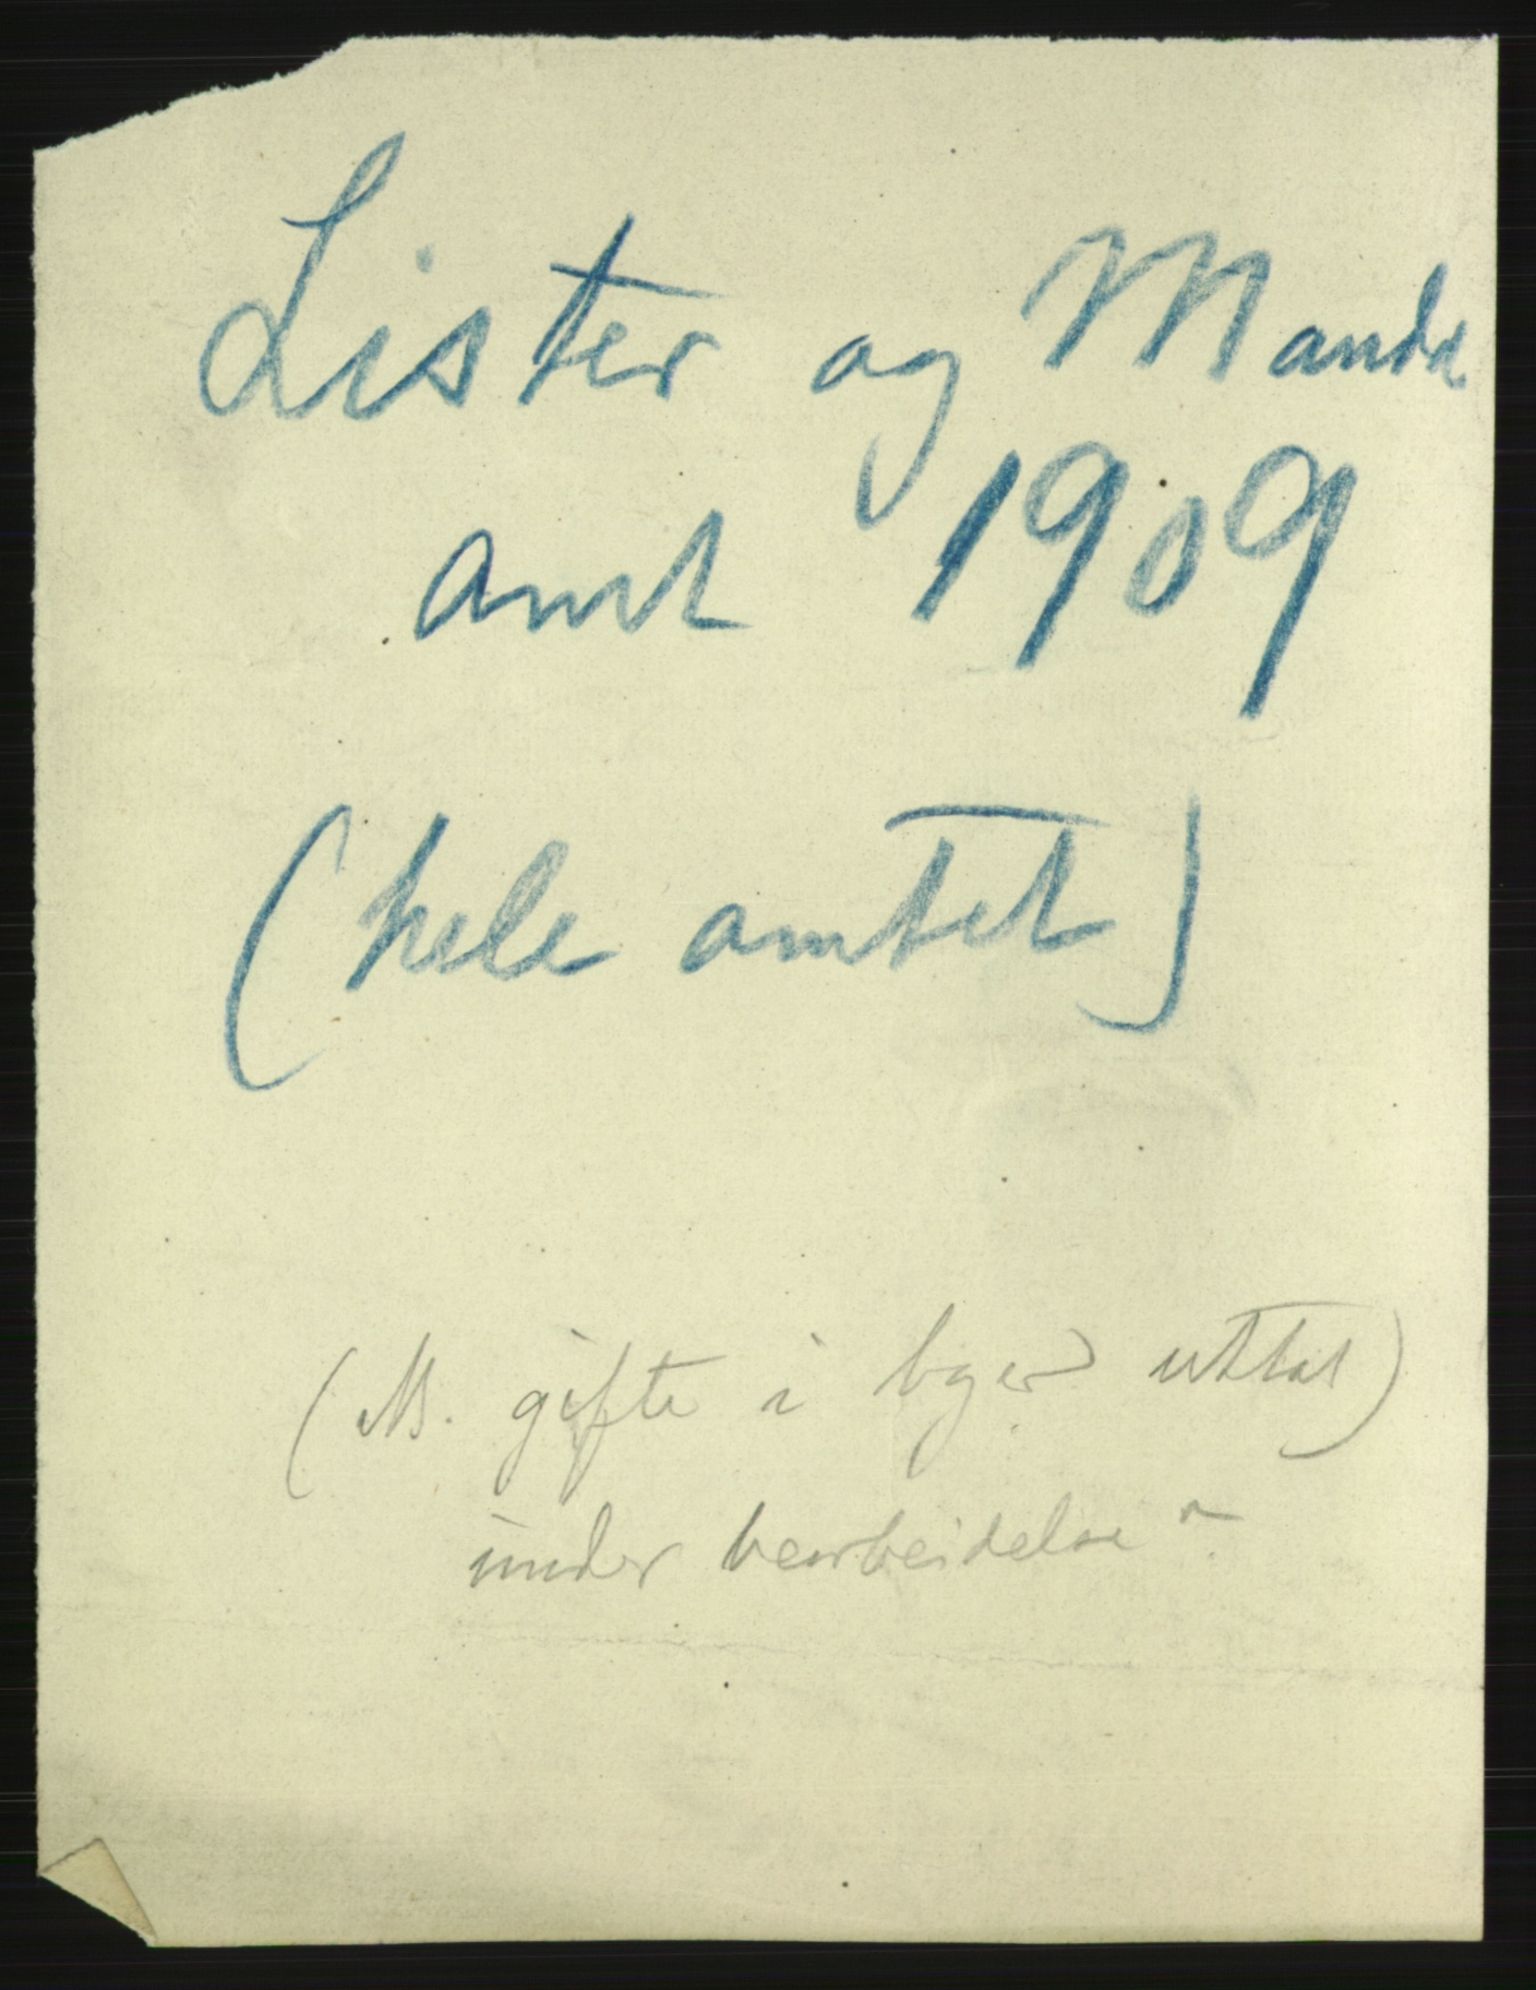 Lister og Mandal
amt 1909
(hele amtet)
(M. gifte i byer uttat)
under bearbeidelse